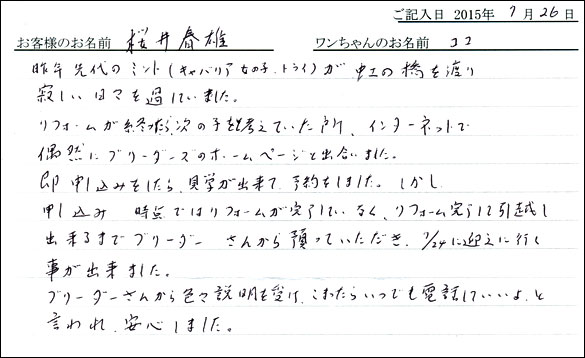 ご記入日 2015年 7月26日
お客様のお名前 桜井春雄 ワンちゃんのお名前 ココ
昨年 先代のミント(キャバリア女の子、トライ)が 虹の橋を渡り
寂しい日々を過していました。
リフォームが終ったら次の子を考えていた所、インターネットで
偶然にブリーダーズのホームページと出合いました。
即 申し込みをしたら、見学が出来て、予約をしました。しかし
申し込み 時点ではリフォームが完了していなく、リフォーム完了して引越し
出来るまでブリーダー さんから預っていただき、7/24に迎えに行く
事が出来ました。
ブリーダーさんから色々説明を受け、こまったらいつでも電話していいよ、と
言われ、安心しました。